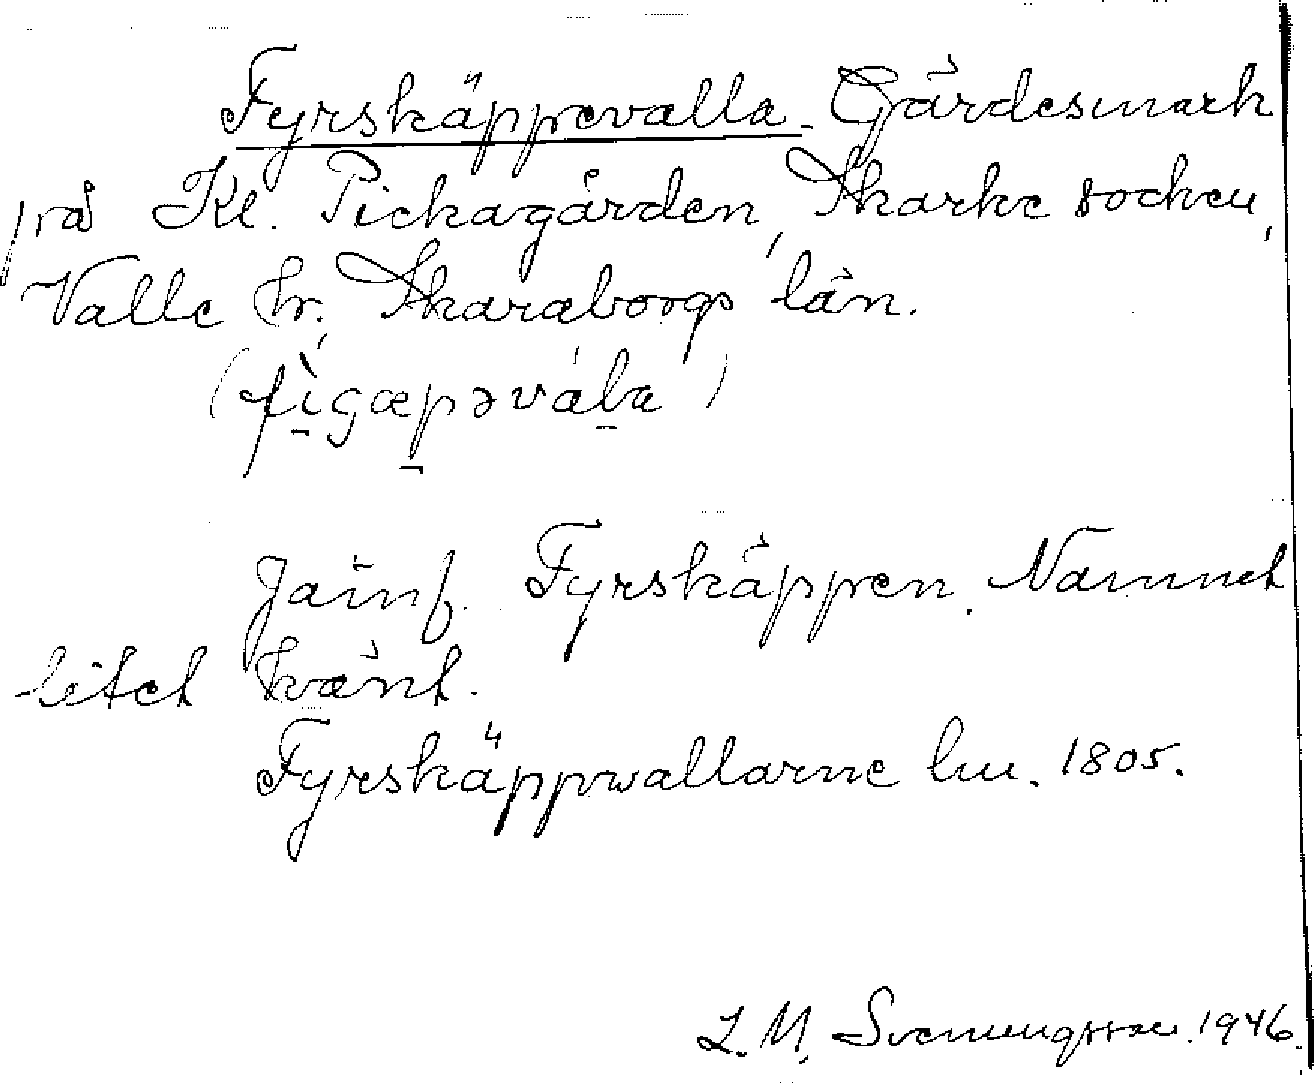 Fyrskäppevalla. Gärdesmark
på Kl. Pickagården, Skarke socken,
Valle hr., Skaraborgs län.
(fìgæpəvála)
Jämf. Fyrskäppen. Namnet
litet känt.
Fyrskäppwallarne lm. 1805.
L. M. Svenungsson. 1946.